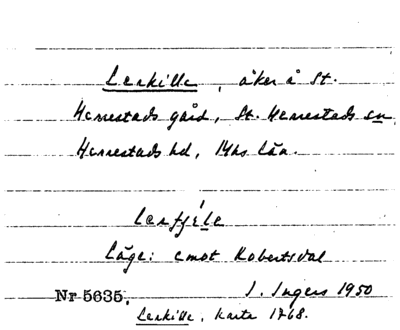 Lerkille, åker å St.
Herrestads gård, St. Herrestads sn
Herrestads hd, Mhs län.
Läge: emot Robertsdal
Nr 5635. I. Ingers 1950
Lerkille, karta 1768.